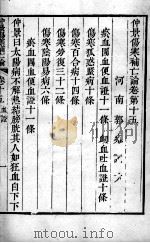 仲景傷寒補亡論卷第十五
河南郭雍
血便血證十一條 衄血吐血證十條
傷寒狐惑病十條
傷寒百合病十四條
傷寒勞復三十二條
傷寒陰陽易病六條
瘀血血便血證十一條
仲景曰太陽病不解熱結膀胱其人如狂血自下下
卷十五